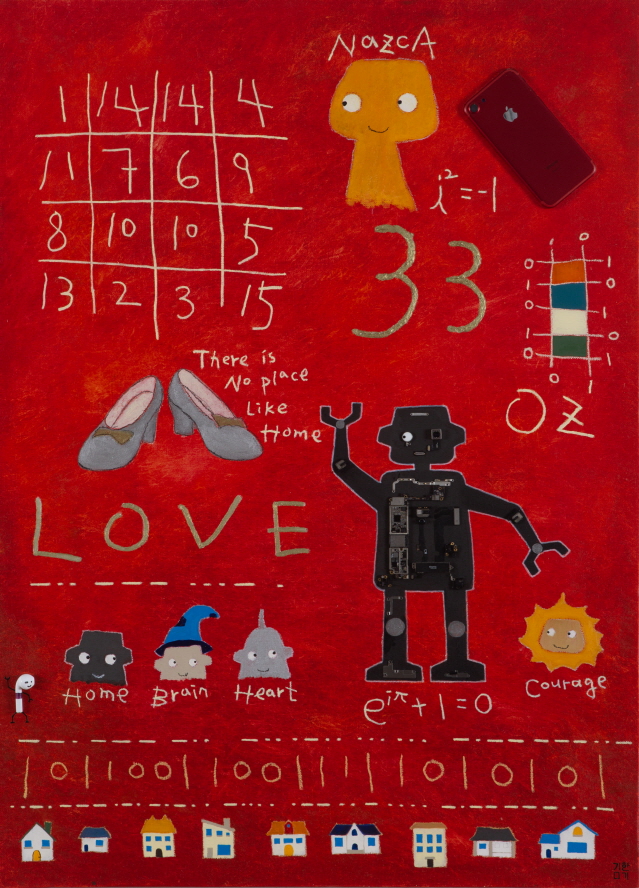 NazcA
1 14 14 4
11 7 6 9
8 10 10 5
13 2 3 15
i²=-1
33
1 0
0 1
1 0
0 1
1 0
0 1
0 1
OZ
There is
No place
Like
Home
LOVE
Home Brain Heart
Courage
e^{iπ}+1=0
101100110011111010101